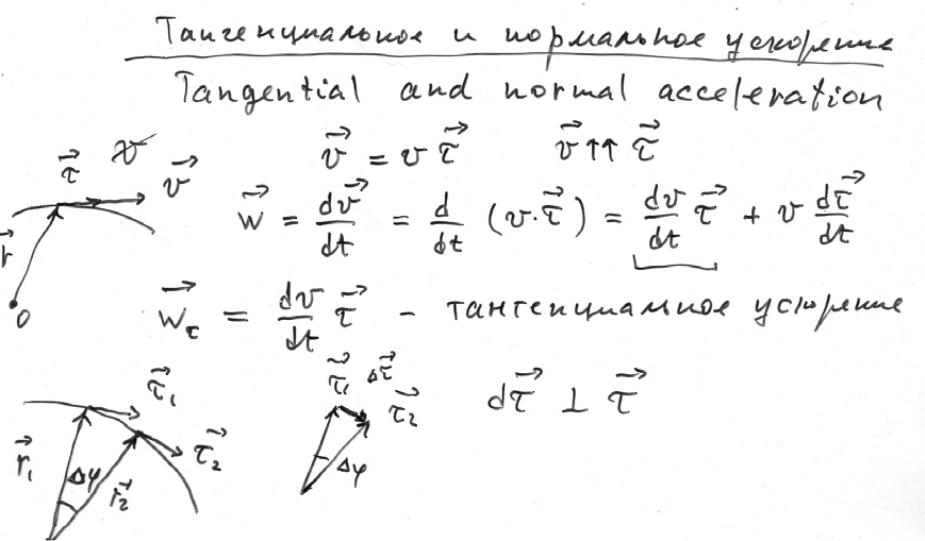 Тангенциальное и нормальное ускорение
Tangential and normal acceleration
v⃗ = v τ⃗    v⃗ ↑↑ τ⃗
τ⃗ v⃗
w⃗ = dv⃗/dt = d/dt (v·τ⃗) = dv/dt τ⃗ + v dτ⃗/dt
r⃗
O
w⃗_τ = dv/dt τ⃗ - тангенциальное ускорение
τ⃗₁ τ⃗₂ r⃗₁ Δφ r⃗₂
τ⃗₁ Δτ⃗ τ⃗₂ Δφ
dτ⃗ ⊥ τ⃗